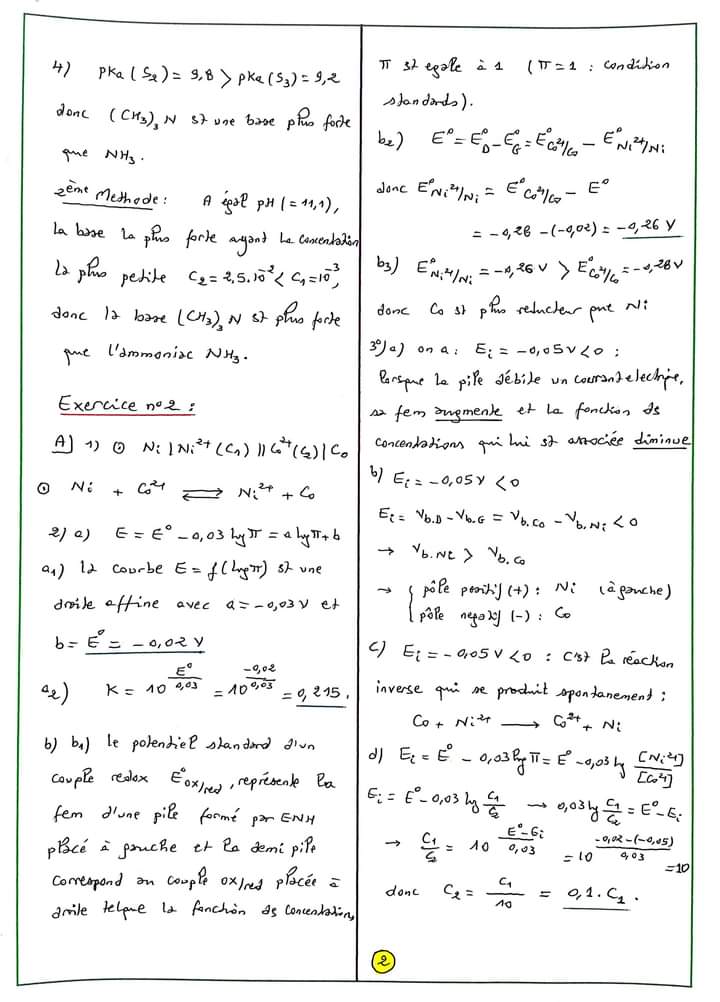 4) pka (S₂) = 9,8 > pka (S₃) = 9,2
donc (CH₃)₃ N st une base plus forte
que NH₃.
2ème Methode : A égal pH (= 11,1),
la base la plus forte ayant la concentration
la plus petite C₂ = 2,5.10⁻² < C₁ = 10⁻³,
donc la base (CH₃)₃ N st plus forte
que l'ammoniac NH₃.
Exercice n°2 :
A] 1) ⊙ Ni | Ni²⁺ (C₁) || Co²⁺ (C₂) | Co
⊙ Ni + Co²⁺ ⇌ Ni²⁺ + Co
2) a) E = E° - 0,03 lg π = a lg π + b
a₁) la courbe E = f(log π) st une
droite affine avec a = -0,03 V et
b = E° = -0,02 V
a₂) K = 10^(E°/0,03) = 10^(-0,02/0,03) = 0,215.
b) b₁) le potentiel standard d'un
couple redox E°ox/red, représente la
fem d'une pile formé par ENH
placé à gauche et la demi pile
correspond au couple ox/red placée à
droite telque la fonction ds concentrations
π st egale à 1 (π = 1 : condition
standards).
b₂) E° = E°D - E°G = E°Co²⁺/Co - E°Ni²⁺/Ni
donc E°Ni²⁺/Ni = E°Co²⁺/Co - E°
= -0,28 - (-0,02) = -0,26 V
b₃) E°Ni²⁺/Ni = -0,26 V > E°Co²⁺/Co = -0,28 V
donc Co st plus reducteur que Ni
3°/ a) on a : Ei = -0,05 V < 0 :
lorsque la pile débite un courant electrique,
sa fem augmente et la fonction ds
concentrations qui lui st associée diminue
b) Ei = -0,05 V < 0
Ei = Vb.D - Vb.G = Vb.Co - Vb.Ni < 0
→ Vb.Ni > Vb.Co
→ { pôle positif (+) : Ni (à gauche)
pôle negatif (-) : Co
c) Ei = -0,05 V < 0 : C'st la réaction
inverse qui se produit spontanement :
Co + Ni²⁺ → Co²⁺ + Ni
d) Ei = E° - 0,03 lg π = E° - 0,03 lg [Ni²⁺]/[Co²⁺]
Ei = E° - 0,03 lg C₁/C₂ → 0,03 lg C₁/C₂ = E° - Ei
→ C₁/C₂ = 10^((E° - Ei)/0,03) = 10^((-0,02 - (-0,05))/0,03) = 10
donc C₂ = C₁/10 = 0,1 . C₁.
2